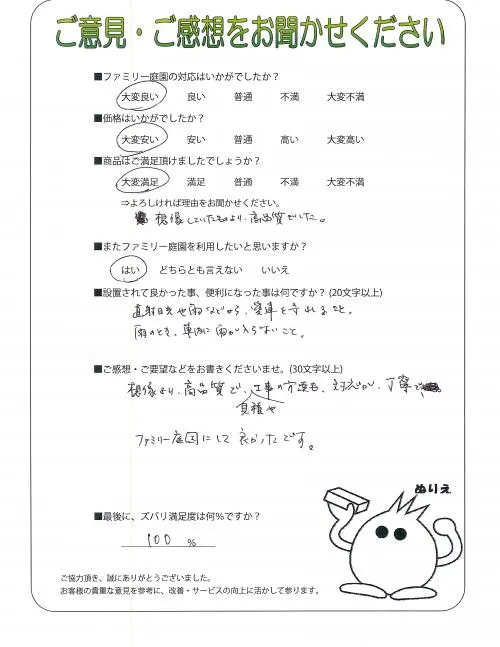 ご意見・ご感想をお聞かせください
■ファミリー庭園の対応はいかがでしたか？
大変良い 良い 普通 不満 大変不満
■価格はいかがでしたか？
大変安い 安い 普通 高い 大変高い
■商品はご満足頂けましたでしょうか？
大変満足 満足 普通 不満 大変不満
⇒よろしければ理由をお聞かせください。
想像していたものより、高品質でした。
■またファミリー庭園を利用したいと思いますか？
はい どちらとも言えない いいえ
■設置されて良かった事、便利になった事は何ですか？(20文字以上)
直射日光や雨などから、愛車を守れること。
雨のとき、車内に雨が入らないこと。
■ご感想・ご要望などをお書きくださいませ。(30文字以上)
想像より、高品質で、工事の方達も、対応が、丁寧で、
見積や
ファミリー庭園にして良かったです。
ぬりえ
■最後に、ズバリ満足度は何％ですか？
100 %
ご協力頂き、誠にありがとうございました。
お客様の貴重な意見を参考に、改善・サービスの向上に活かして参ります。